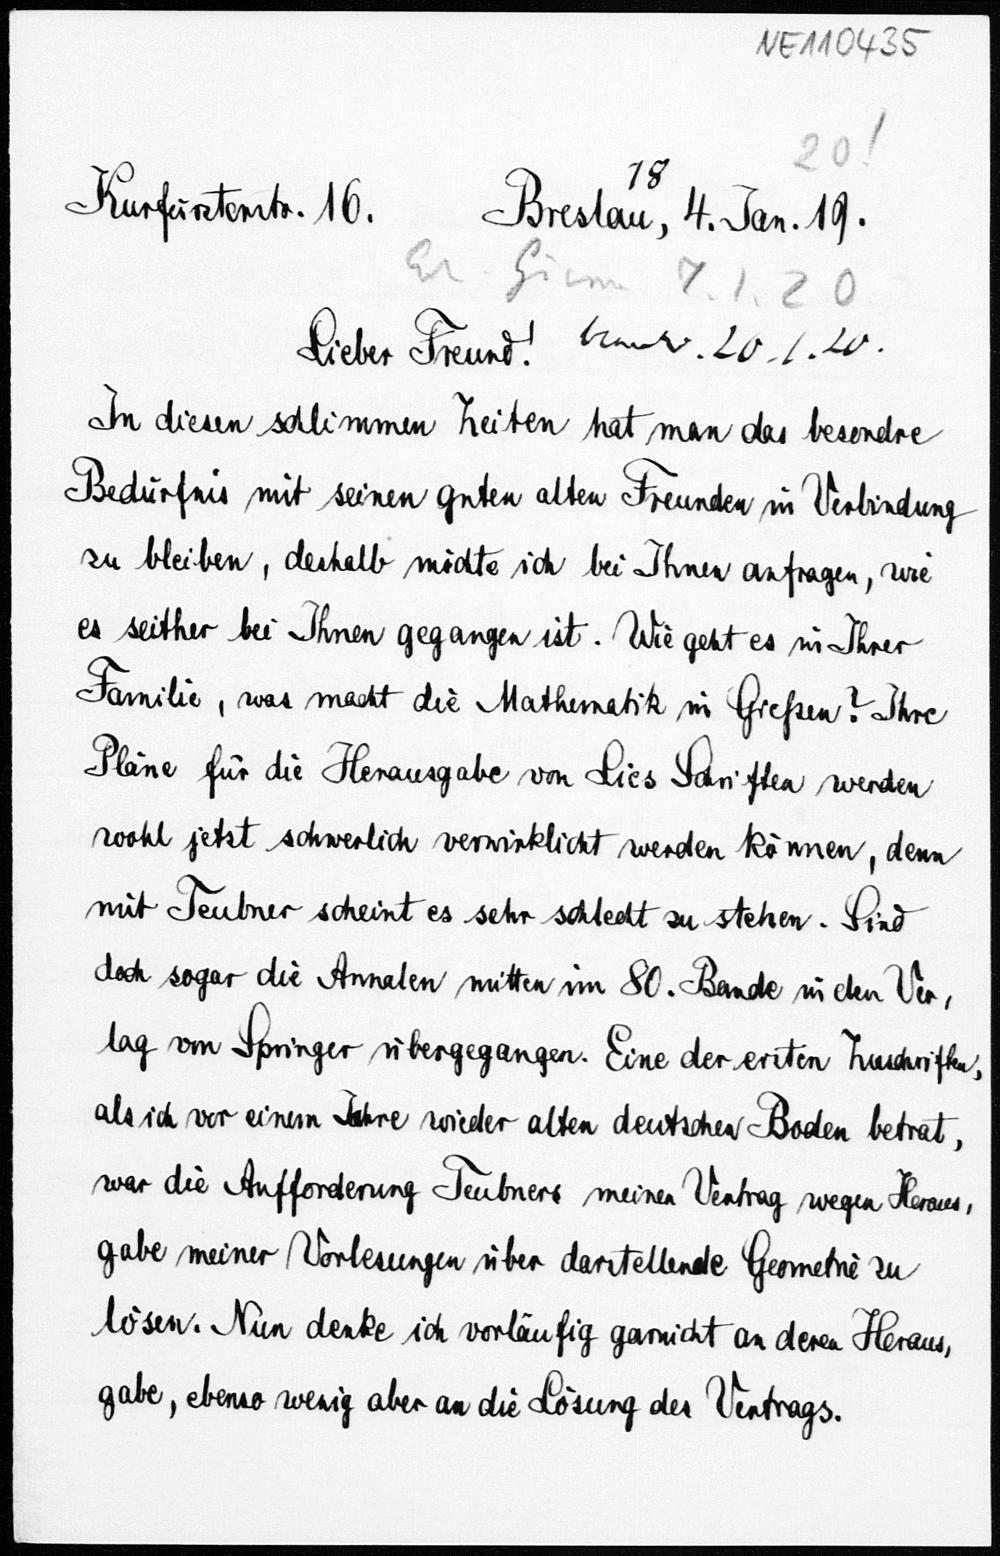 NE110435
20!
Kurfürstenstr. 16. Breslau 18, 4. Jan. 19.
7.1.20
Lieber Freund! 20.1.20.
In diesen schlimmen Zeiten hat man das besondre
Bedürfnis mit seinen guten alten Freunden in Verbindung
zu bleiben, deshalb möchte ich bei Ihnen anfragen, wie
es seither bei Ihnen gegangen ist. Wie geht es in Ihrer
Familie, was macht die Mathematik in Gießen? Ihre
Pläne für die Herausgabe von Lies Schriften werden
wohl jetzt schwerlich verwirklicht werden können, denn
mit Teubner scheint es sehr schlecht zu stehen. Sind
doch sogar die Annalen mitten im 80. Bande in den Ver-
lag von Springer übergegangen. Eine der ersten Zuschriften,
als ich vor einem Jahre wieder alten deutschen Boden betrat,
war die Aufforderung Teubners meinen Vertrag wegen Heraus-
gabe meiner Vorlesungen über darstellende Geometrie zu
lösen. Nun denke ich vorläufig garnicht an deren Heraus-
gabe, ebenso wenig aber an die Lösung des Vertrags.